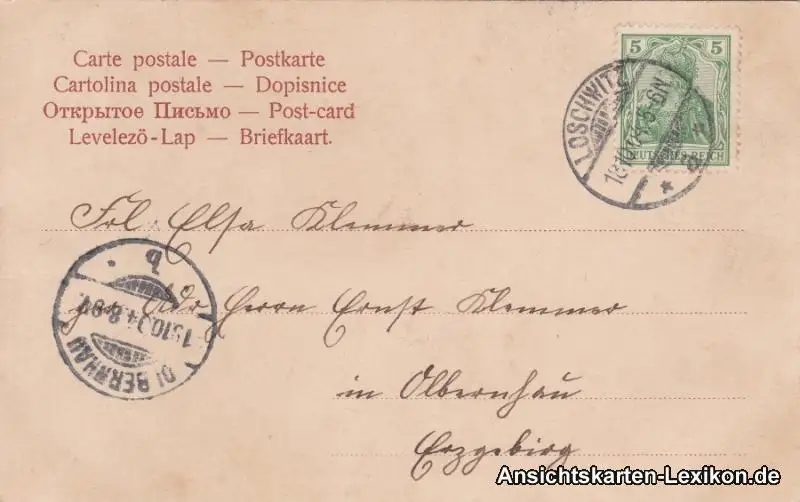 Carte postale — Postkarte
Cartolina postale — Dopisnice
Открытое Письмо — Post-card
Levelezö-Lap — Briefkaart.
5 5
DEUTSCHES REICH
LOSCHWITZ
Frl. Elsa Klemmer
b
Adr. Herrn Ernst Klemmer
OLBERNHAU
in Olbernhau
Erzgebirg
Ansichtskarten-Lexikon.de